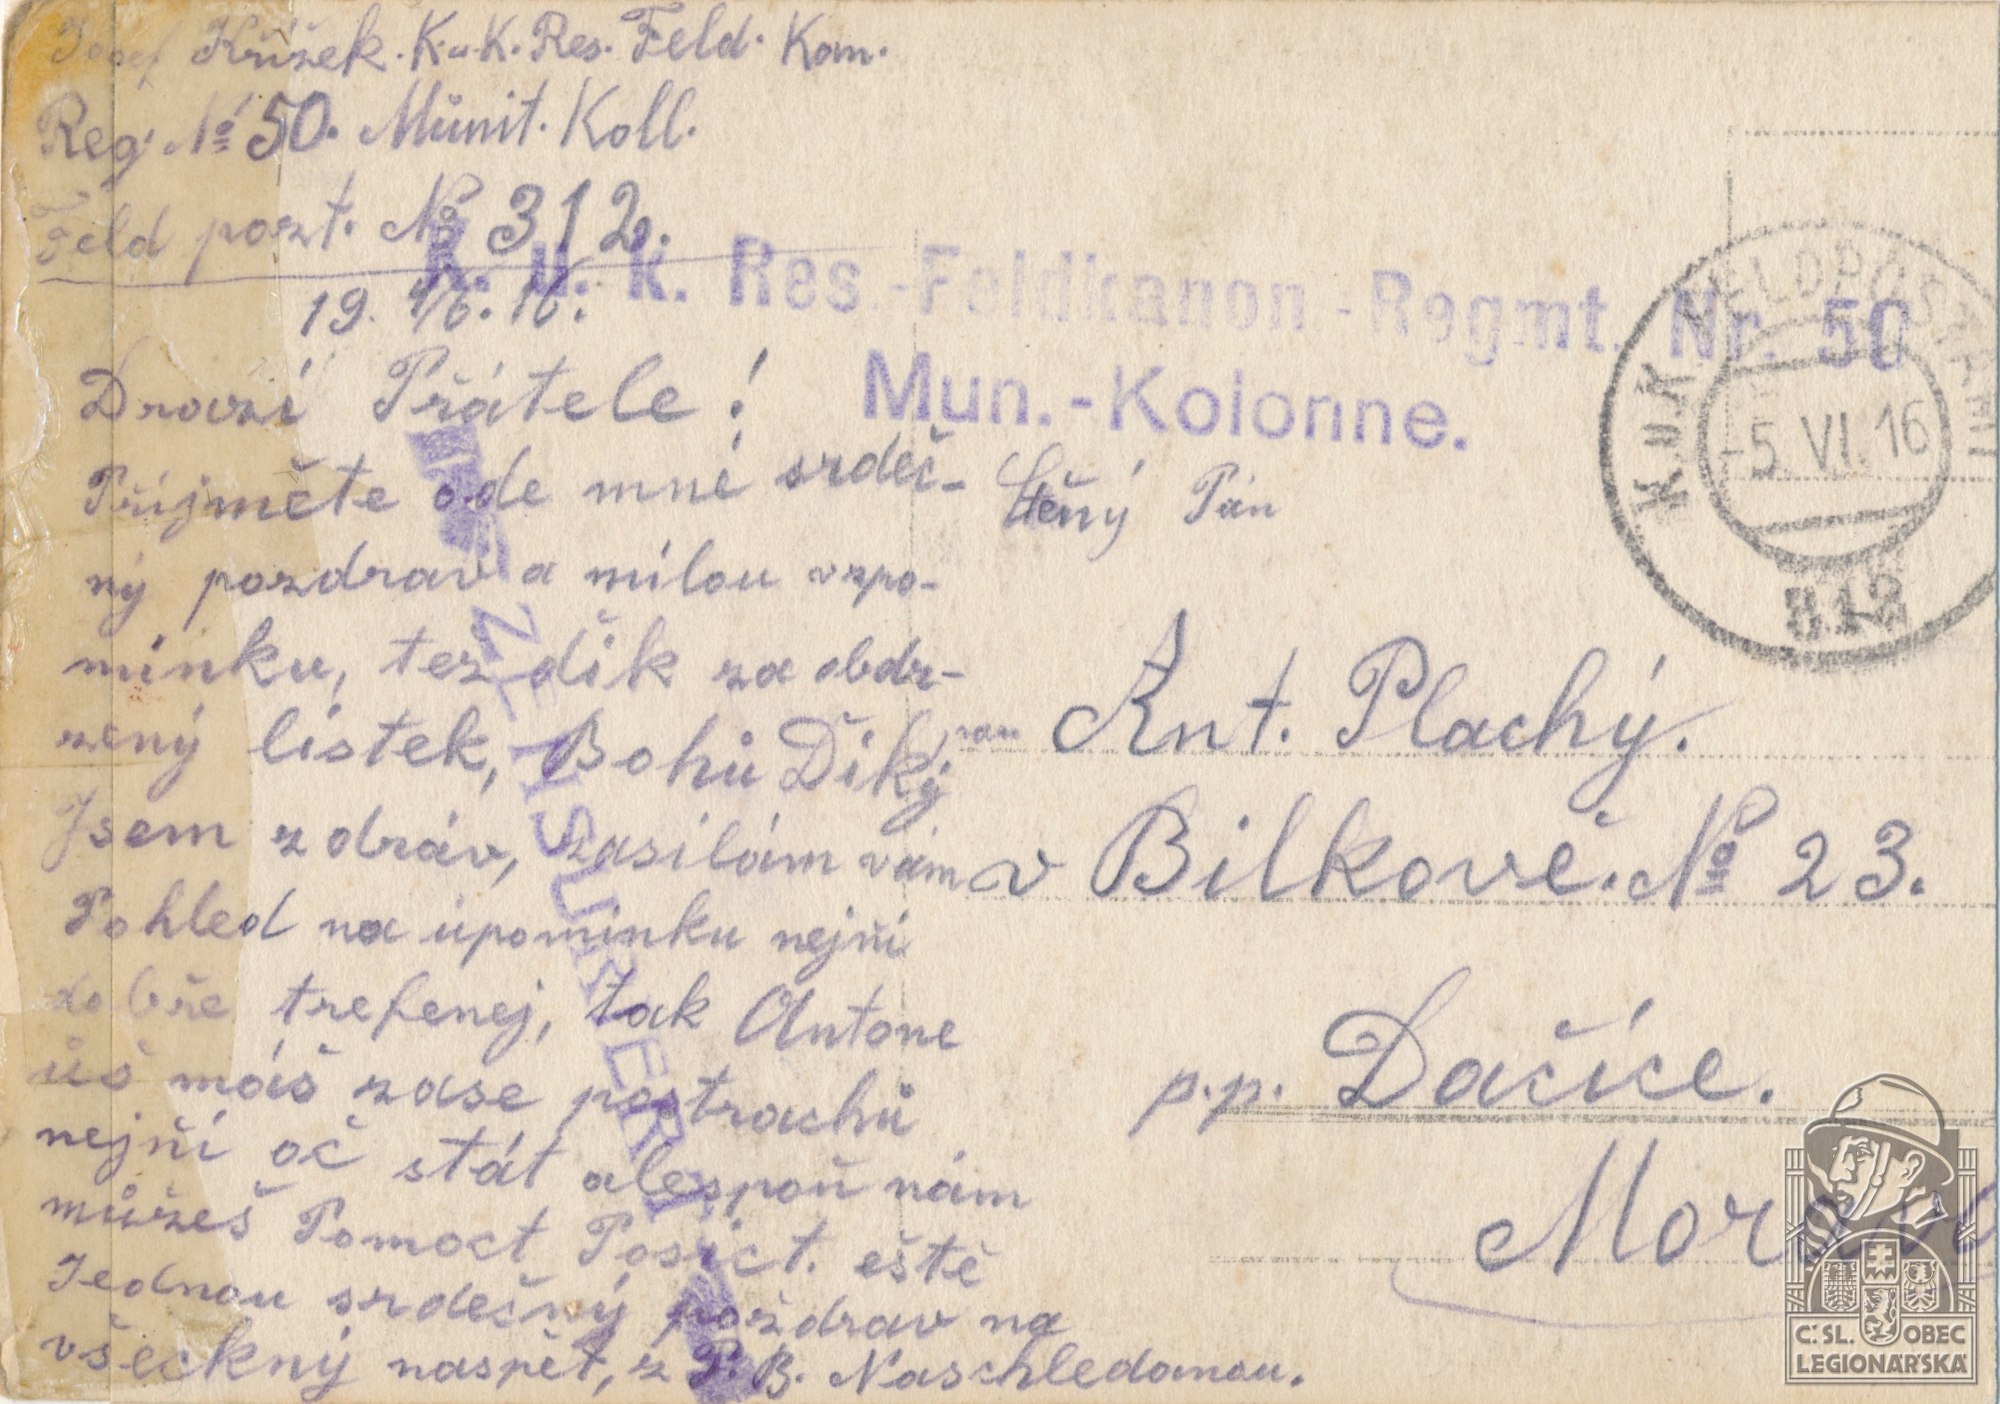 Josef Křížek. K.u.K. Res. Feld. Kom.
Reg. No 50. Můnit. Koll.
Feld pozt. No 312.
19 4/6. 16.
K. u. k. Res.-Feldkanon.-Regmt. Nr. 50
Mun.-Kolonne.
K.u.K. FELDPOSTAMT
-5. VI. 16
312
Drazí Přátele!
Příjměte ode mně srdeč-
ný pozdrav a milou vzpo-
mínku, tez dík za obdr-
zený lístek, Bohů Díký
Jsem zdráv, zasílám vám
Pohled na úpomínku nejní
dobře trefenej, tak Antone
ůš máš zase postrachů
nejní oč stát alespoň nám
můžeš Pomoct Posíct. eště
Jednou srdečný pozdrav na
všecký naspět, z P. B. Naschledanou.
ZENSURIERT
Ctěný Pán
pan Ant. Plachý.
v Bilkově. No 23.
p.p. Dačíce.
Morava
Č.SL. OBEC
LEGIONÁŘSKÁ